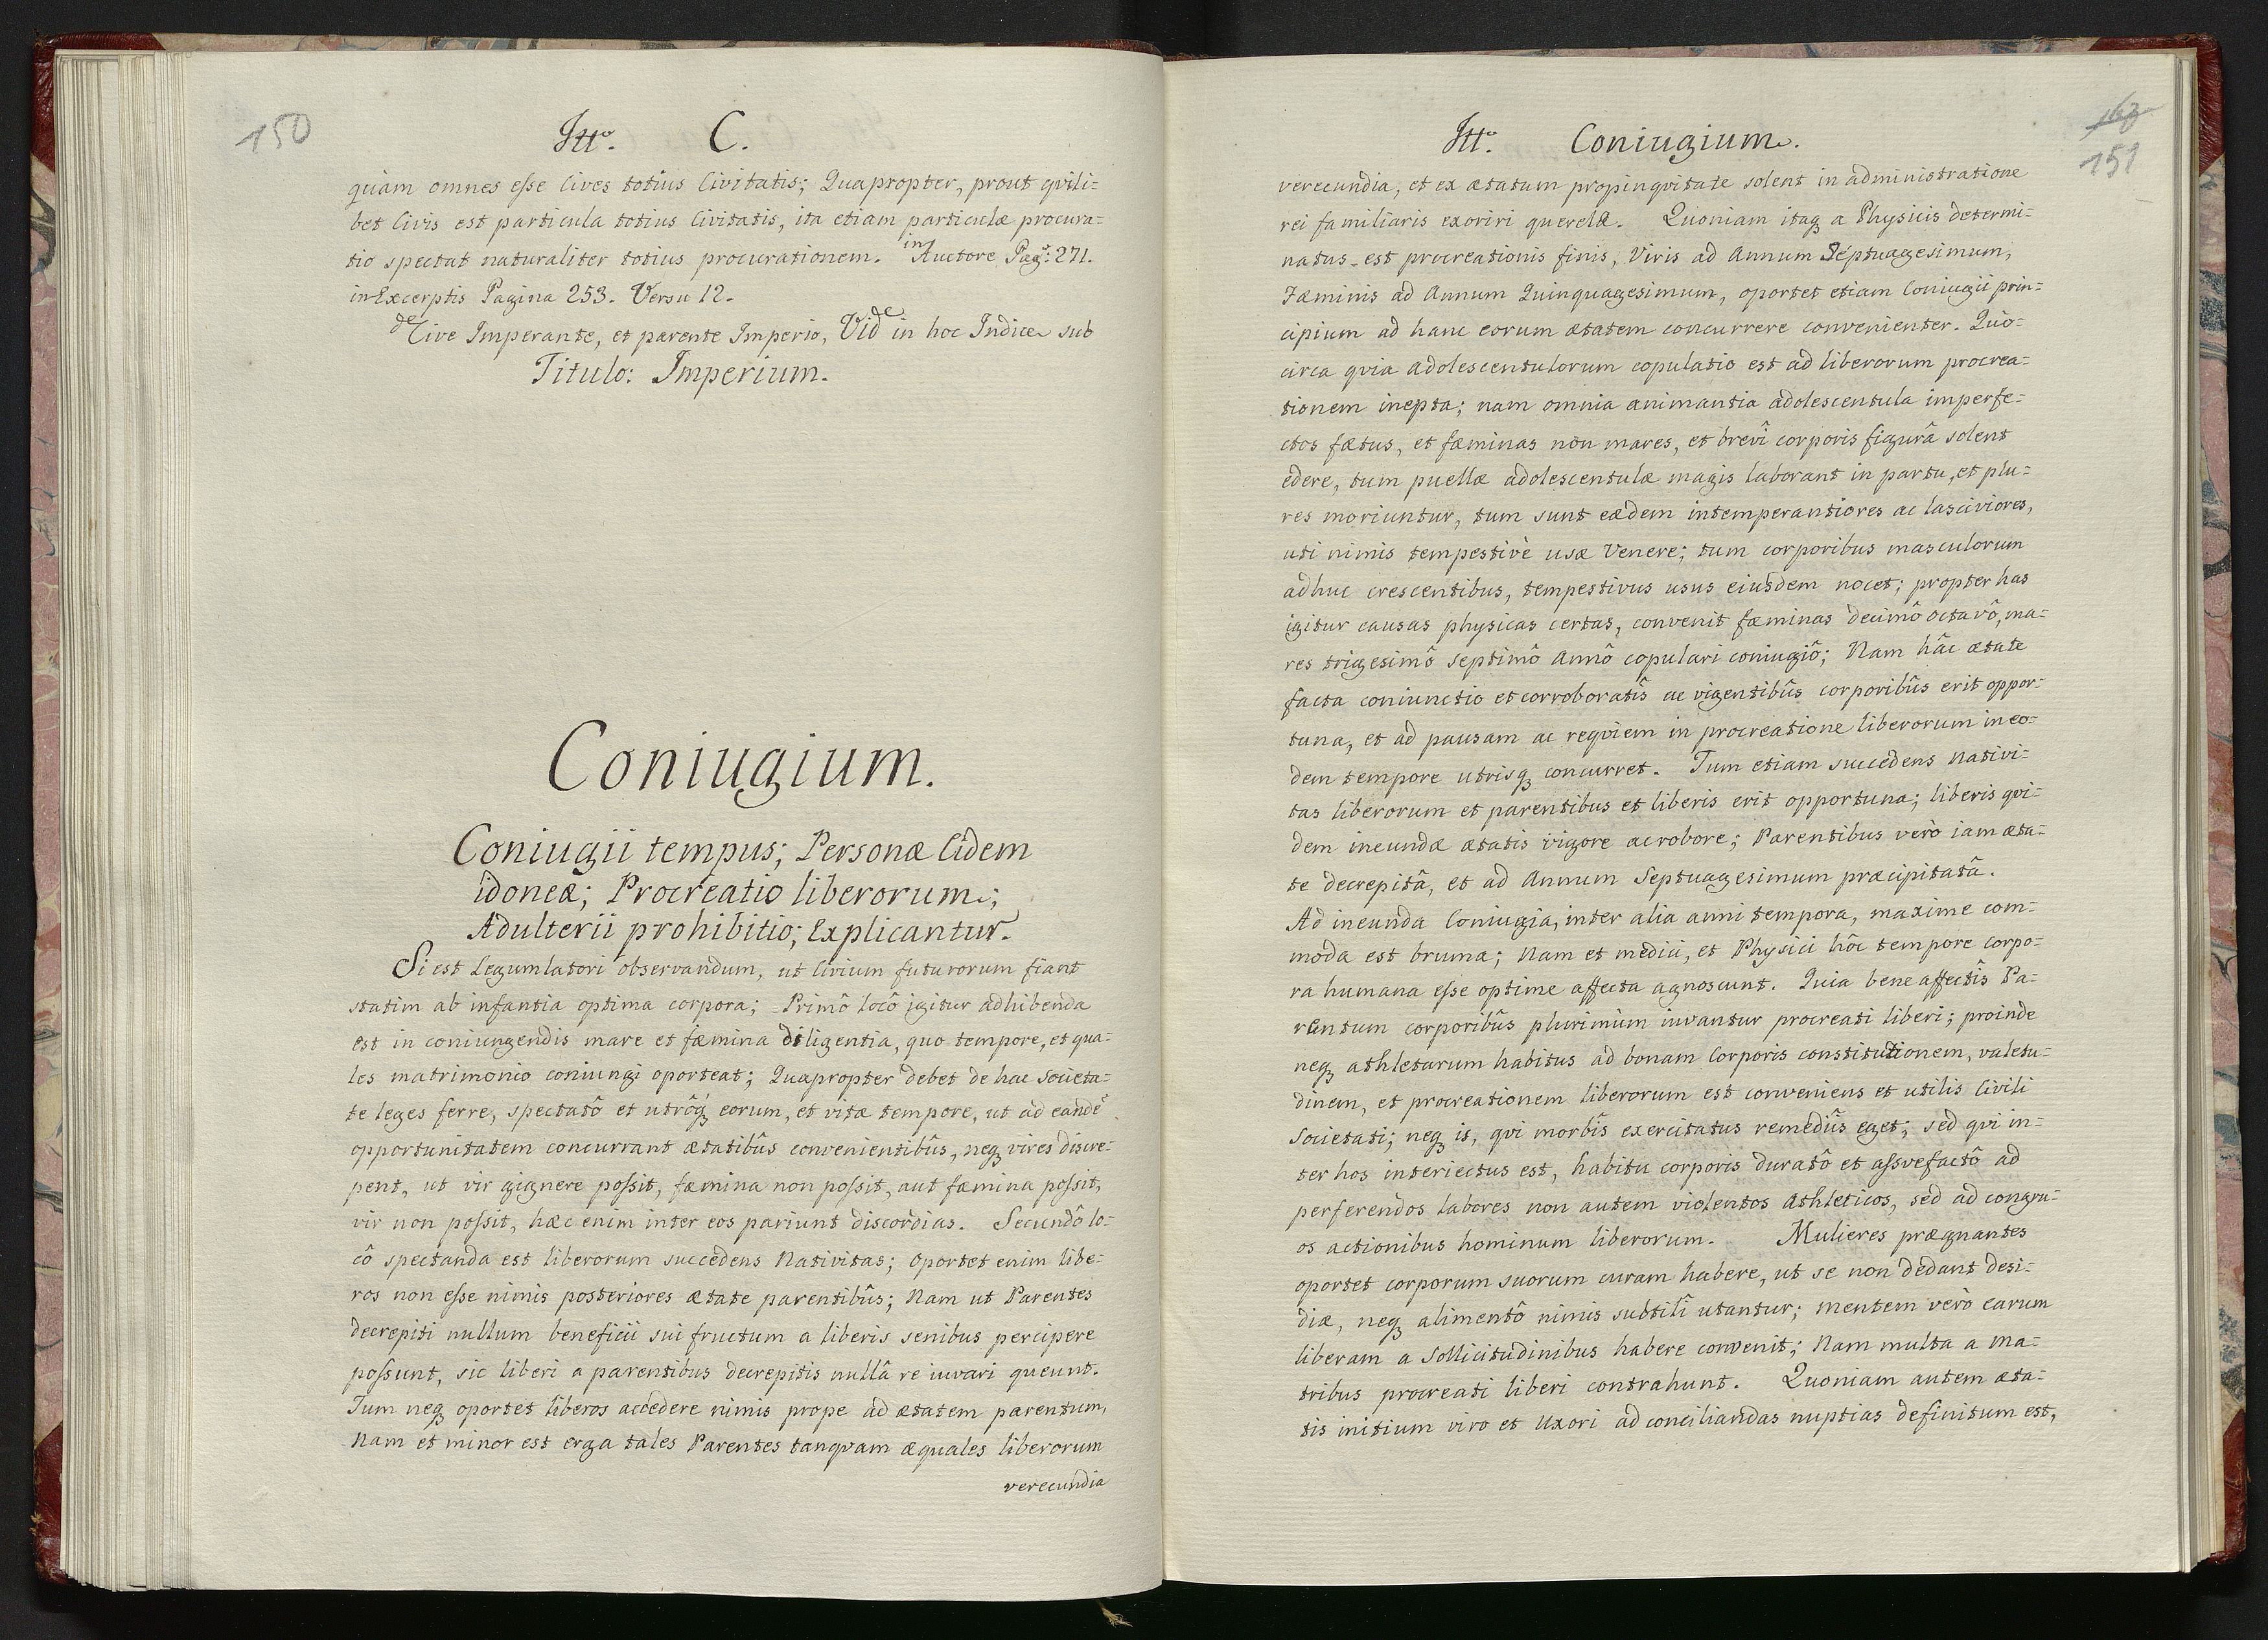 150
Ittº. C.
quam omnes eſse Cives totius Civitatis; Quapropter, prout qvili=
bet Civis est particula totius Civitatis, ita etiam particulæ procura=
tio spectat naturaliter totius procurationem. in Auctore Pag: 271.
in Excerptis Pagina 253. Versu 12.
de Cive Imperante, et parente Imperio, Vide in hoc Indice sub
Titulo: Imperium.
Coniugium.
Coniugii tempus; Personæ Eidem
idoneæ; Procreatio liberorum;
Adulterii prohibitio; Explicantur.
Si est Legumlatori observandum, ut Civium futurorum fiant
statim ab infantia optima corpora; Primô locô igitur adhibenda
est in coniungendis mare et fæmina diligentia, quo tempore, et qua=
les matrimonio coniungi oporteat; Quapropter debet de hac Societa=
te leges ferre, spectatô et utrôq́ eorum, et vitæ tempore, ut ad eandē
opportunitatem concurrant ætatibûs convenientibûs, neq vires discre=
pent, ut vir gignere poſsit, fæmina non poſsit, aut fæmina poſsit,
vir non poſsit, hæc enim inter eos pariunt discordias. Secundô lo=
cô spectanda est liberorum succedens Nativitas; oportet enim libe=
ros non eſse nimis posteriores ætate parentibûs; Nam ut Parentes
decrepiti nullum beneficii sui fructum a liberis senibus percipere
poſsunt, sic liberi a parentibus decrepitis nullâ re iuvari queunt.
Tum neq oportet liberos accedere nimis prope ad ætatem parentum,
Nam et minor est erga tales Parentes tanqvam æquales liberorum
verecundia
163
151
Ittº. Coniugium.
verecundia, et ex ætatum propinqvitate solent in administratione
rei familiaris exoriri querelæ. Quoniam itaq a Physicis determi=
natus est procreationis finis, Viris ad Annum Septuagesimum,
Fæminis ad Annum Quinquagesimum, oportet etiam Coniugii prin=
cipium ad hanc eorum ætatem concurrere convenienter. Quo=
circa qvia Adolescentulorum copulatio est ad liberorum procrea=
tionem inepta; nam omnia animantia adolescentula imperfe=
ctos fætus, et fæminas non mares, et brevî corporis figurâ solent
edere, tum puellæ adolescentulæ magis laborant in partu, et plu=
res moriuntur, tum sunt eædem intemperantiores ac lasciviores,
uti nimis tempestivè usæ Venere; tum corporibus masculorum
adhuc crescentibus, tempestivus usus eiusdem nocet; propter has
igitur causas physicas certas, convenit fæminas decimô octavô, ma=
res trigesimô septimô Annô copulari coniugiô; Nam hâc ætate
facta coniunctio et corroboratîs ac vigentibûs corporibûs erit oppor=
tuna, et ad pausam ac reqviem in procreatione liberorum in eo=
dem tempore utrisq concurret. Tum etiam succedens nativi=
tas liberorum et parentibus et liberis erit opportuna; liberis qvi=
dem ineundæ ætatis vigore ac robore; Parentibus verò iam æta=
te decrepitâ, et ad Annum Septuagesimum præcipitatâ.
Ad ineunda Coniugia, inter alia anni tempora, maxime com=
moda est bruma; Nam et medici, et Physici hôc tempore corpo=
ra humana eſse optime affecta agnoscunt. Quia bene affectîs Pa=
rentum corporibûs plurimùm iuvantur procreati liberi; proinde
neq athletarum habitus ad bonam Corporis constitutionem, valetu=
dinem, et procreationem liberorum est conveniens et utilis Civili
Societati; neq is, qvi morbîs exercitatus remediîs eget; sed qvi in=
ter hos interiectus est, habitu corporis duratô et aſsvefactô ad
perferendos labores non autem violentos Athleticos, sed ad congru=
os actionibus hominum liberorum. Mulieres prægnantes
oportet corporum suorum curam habere, ut se non dedant desi=
diæ, neq alimentô nimis subtilî utantur; mentem verò earum
liberam a sollicitudinibus habere convenit; Nam multa a ma=
tribus procreati liberi contrahunt. Quoniam autem æta=
tis initium viro et Uxori ad conciliandas nuptias definitum est,